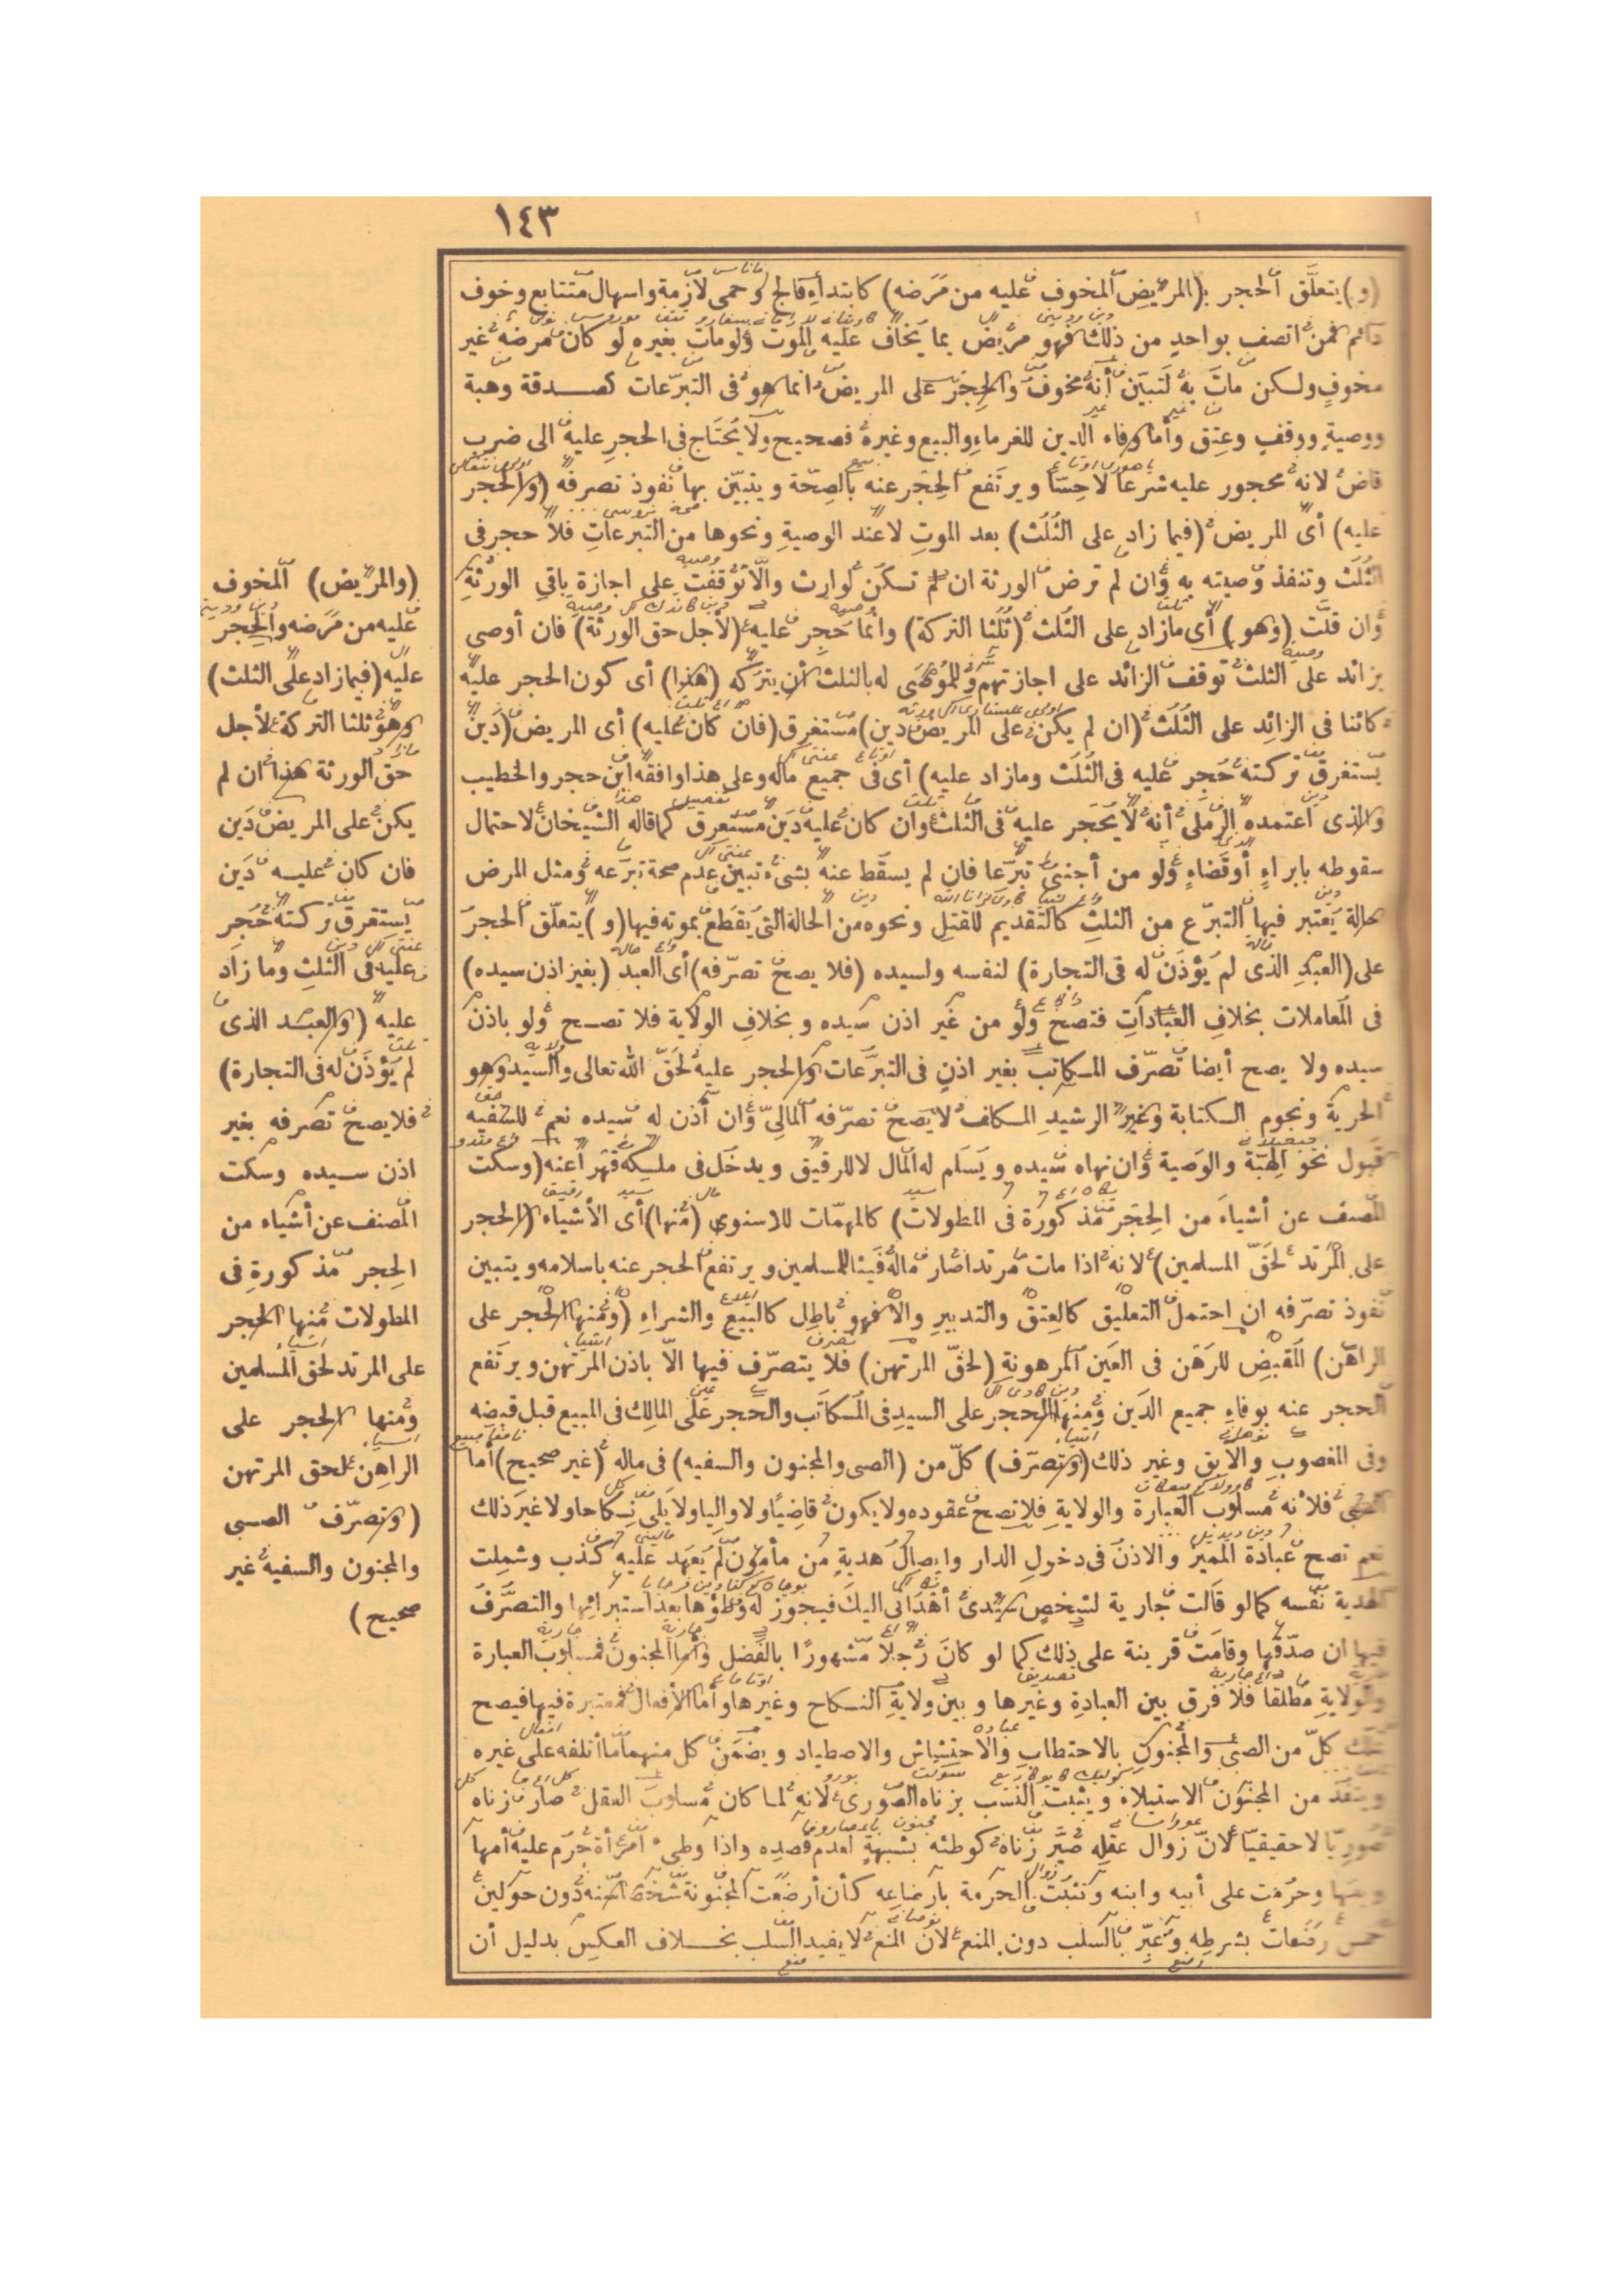 ١٤٣
(و) يتعلق الحجر ب(المريض المخوف عليه من مرضه) كابتداء فالج وحمى لازمة واسهال متتابع وخوف
دائم فمن اتصف بواحد من ذلك فهو مريض بما يخاف عليه الموت ولو مات بغيره لو كان مرضه غير
مخوف ولكن مات به لتبين أنه مخوف والحجر على المريض انما هو فى التبرعات كصدقة وهبة
ووصية ووقف وعتق وأما وفاء الدين للغرماء والبيع وغيره فصحيح ولا يحتاج فى الحجر عليه الى ضرب
قاض لانه محجور عليه شرعا لا حسا ويرتفع الحجر عنه بالصحة ويتبين بها نفوذ تصرفه (والحجر
عليه) أى المريض (فيما زاد على الثلث) بعد الموت لا عند الوصية ونحوها من التبرعات فلا حجر فى
الثلث وتنفذ وصيته به وان لم ترض الورثة ان لم تكن لوارث والا توقفت على اجازة باقى الورثة
وان قلت (وهو) أى ما زاد على الثلث (ثلثا التركة) وانما حجر عليه (لأجل حق الورثة) فان أوصى
بزائد على الثلث توقف الزائد على اجازتهم وللموصى له بالثلث أن يتركه (هذا) أى كون الحجر عليه
كائنا فى الزائد على الثلث (ان لم يكن على المريض دين) مستغرق (فان كان عليه) أى المريض (دين
يستغرق تركته حجر عليه فى الثلث وما زاد عليه) أى فى جميع ماله وعلى هذا وافقه ابن حجر والخطيب
والذى اعتمده الرملى أنه لا يحجر عليه فى الثلث وان كان عليه دين مستغرق كما قاله الشيخان لاحتمال
سقوطه بابراء أو قضاء ولو من أجنبى تبرعا فان لم يسقط عنه بشىء تبين عدم صحة تبرعه ومثل المرض
حالة يعتبر فيها التبرع من الثلث كالتقديم للقتل ونحوه من الحالة التى يقطع بموته فيها (و) يتعلق الحجر
على (العبد الذى لم يؤذن له فى التجارة) لنفسه ولسيده (فلا يصح تصرفه) أى العبد (بغير اذن سيده)
فى المعاملات بخلاف العبادات فتصح ولو من غير اذن سيده وبخلاف الولاية فلا تصح ولو باذن
سيده ولا يصح أيضا تصرف المكاتب بغير اذن فى التبرعات والحجر عليه لحق الله تعالى والسيد وهو
الحرية ونجوم الكتابة وغير الرشيد المكلف لا يصح تصرفه المالى وان أذن له سيده نعم للسفيه
قبول نحو الهبة والوصية وان نهاه سيده ويسلم له المال لا للرقيق ويدخل فى ملكه قهرا عنه (وسكت
المصنف عن أشياء من الحجر مذكورة فى المطولات) كالمهمات للاسنوى (منها) أى الأشياء (الحجر
على المرتد لحق المسلمين) لانه اذا مات مرتدا صار ماله فيئا للمسلمين ويرتفع الحجر عنه باسلامه ويتبين
نفوذ تصرفه ان احتمل التعليق كالعتق والتدبير والا فهو باطل كالبيع والشراء (ومنها الحجر على
الراهن) المقبض للرهن فى العين المرهونة (لحق المرتهن) فلا يتصرف فيها الا باذن المرتهن ويرتفع
الحجر عنه بوفاء جميع الدين ومنها الحجر على السيد فى المكاتب والحجر على المالك فى المبيع قبل قبضه
وفى المغصوب والآبق وغير ذلك (وتصرف) كل من (الصبى والمجنون والسفيه) فى ماله (غير صحيح) أما
الصبى فلأنه مسلوب العبارة والولاية فلا تصح عقوده ولا يكون قاضيا ولا واليا ولا يلى نكاحا ولا غير ذلك
نعم تصح عبادة المميز والاذن فى دخول الدار وايصال هدية من مأمون لم يعهد عليه كذب وشملت
الهدية نفسه كما لو قالت جارية لشخص سيدى أهدانى اليك فيجوز له وطؤها بعد استبرائها والتصرف
فيها ان صدقها وقامت قرينة على ذلك كما لو كان رجلا مشهورا بالفضل وأما المجنون فمسلوب العبارة
والولاية مطلقا فلا فرق بين العبادة وغيرها وبين ولاية النكاح وغيرها وأما الأفعال فمعتبرة فيها فيصح
تملك كل من الصبى والمجنون بالاحتطاب والاحتشاش والاصطياد ويضمن كل منهما ما أتلفه على غيره
وينفذ من المجنون الاستيلاد ويثبت النسب بزناه الصورى لانه لما كان مسلوب العقل صار زناه
صوريا لا حقيقيا لان زوال عقله صير زناه كوطئه بشبهة لعدم قصده واذا وطىء امرأة حرم عليه أمها
وبنتها وحرمت على أبيه وابنه وتثبت الحرمة بارضاعه كأن أرضعت المجنونة شخصا سنه دون حولين
خمس رضعات بشرطه وعبر بالسلب دون المنع لان المنع لا يفيد السلب بخلاف العكس بدليل أن
(والمريض) المخوف
عليه من مرضه والحجر
عليه (فيما زاد على الثلث)
وهو ثلثا التركة لأجل
حق الورثة هذا ان لم
يكن على المريض دين
فان كان عليه دين
يستغرق تركته حجر
عليه فى الثلث وما زاد
عليه (والعبد الذى
لم يؤذن له فى التجارة)
فلا يصح تصرفه بغير
اذن سيده وسكت
المصنف عن أشياء من
الحجر مذكورة فى
المطولات منها الحجر
على المرتد لحق المسلمين
ومنها الحجر على
الراهن لحق المرتهن
(وتصرف الصبى
والمجنون والسفيه غير
صحيح)